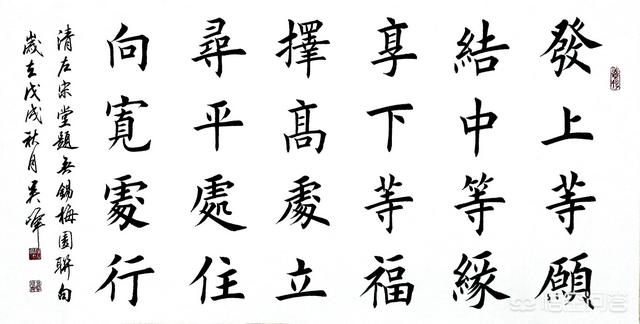 發上等願
結中等緣
享下等福
擇髙處立
尋平處住
向寬處行
清左宗堂題無錫梅園聯句
歲在戊戌秋月吴
悟空问答